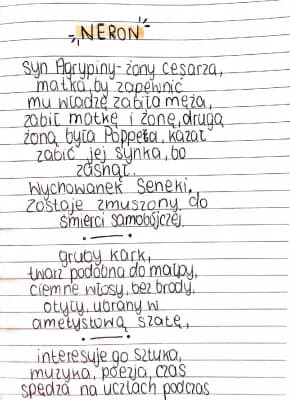 NERON
Syn Agrypiny - żony cesarza,
matka, by zapewnić
mu władzę zabiła męża,
zabił matkę i żonę, drugą
żoną była Poppea, kazał
zabić jej synka, bo
zasnął.
Wychowanek Seneki,
zostaje zmuszony do
śmierci samobójczej.
gruby kark,
twarz podobna do małpy,
ciemne włosy, bez brody,
otyły, ubrany w
ametystową szatę,
interesuje go sztuka,
muzyka, poezja, czas
spędza na ucztach podczas